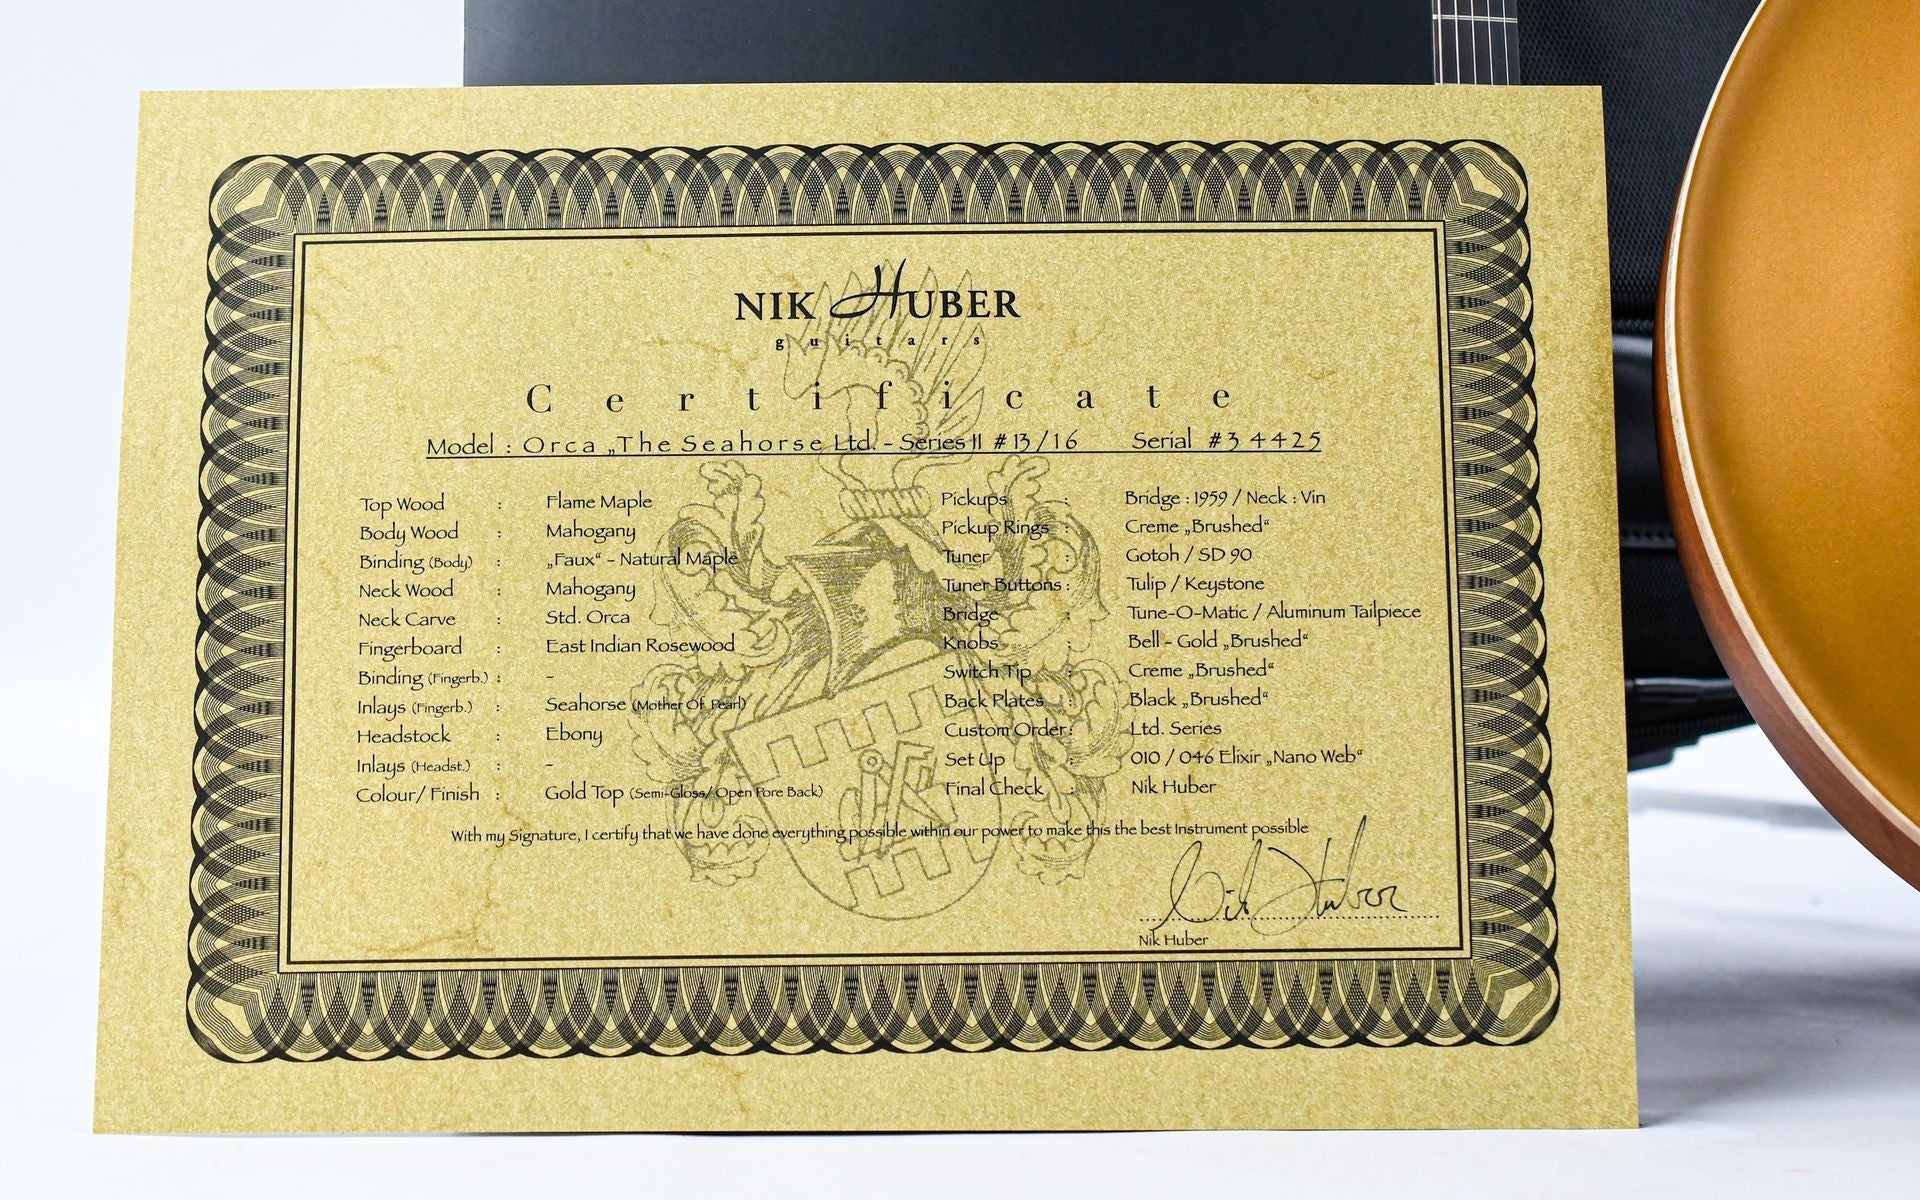 NIK HUBER
guitars
Certificate
Model : Orca „The Seahorse Ltd. - Series II #13/16 Serial #3 4425
Top Wood : Flame Maple
Body Wood : Mahogany
Binding (Body) : „Faux“ - Natural Maple
Neck Wood : Mahogany
Neck Carve : Std. Orca
Fingerboard : East Indian Rosewood
Binding (Fingerb.) : -
Inlays (Fingerb.) : Seahorse (Mother Of Pearl)
Headstock : Ebony
Inlays (Headst.) : -
Colour/ Finish : Gold Top (Semi-Gloss/ Open Pore Back)
Pickups : Bridge : 1959 / Neck : Vin
Pickup Rings : Creme „Brushed“
Tuner : Gotoh / SD 90
Tuner Buttons : Tulip / Keystone
Bridge : Tune-O-Matic / Aluminum Tailpiece
Knobs : Bell - Gold „Brushed“
Switch Tip : Creme „Brushed“
Back Plates : Black „Brushed“
Custom Order : Ltd. Series
Set Up : 010 / 046 Elixir „Nano Web“
Final Check : Nik Huber
With my Signature, I certify that we have done everything possible within our power to make this the best Instrument possible
Nik Huber
Nik Huber